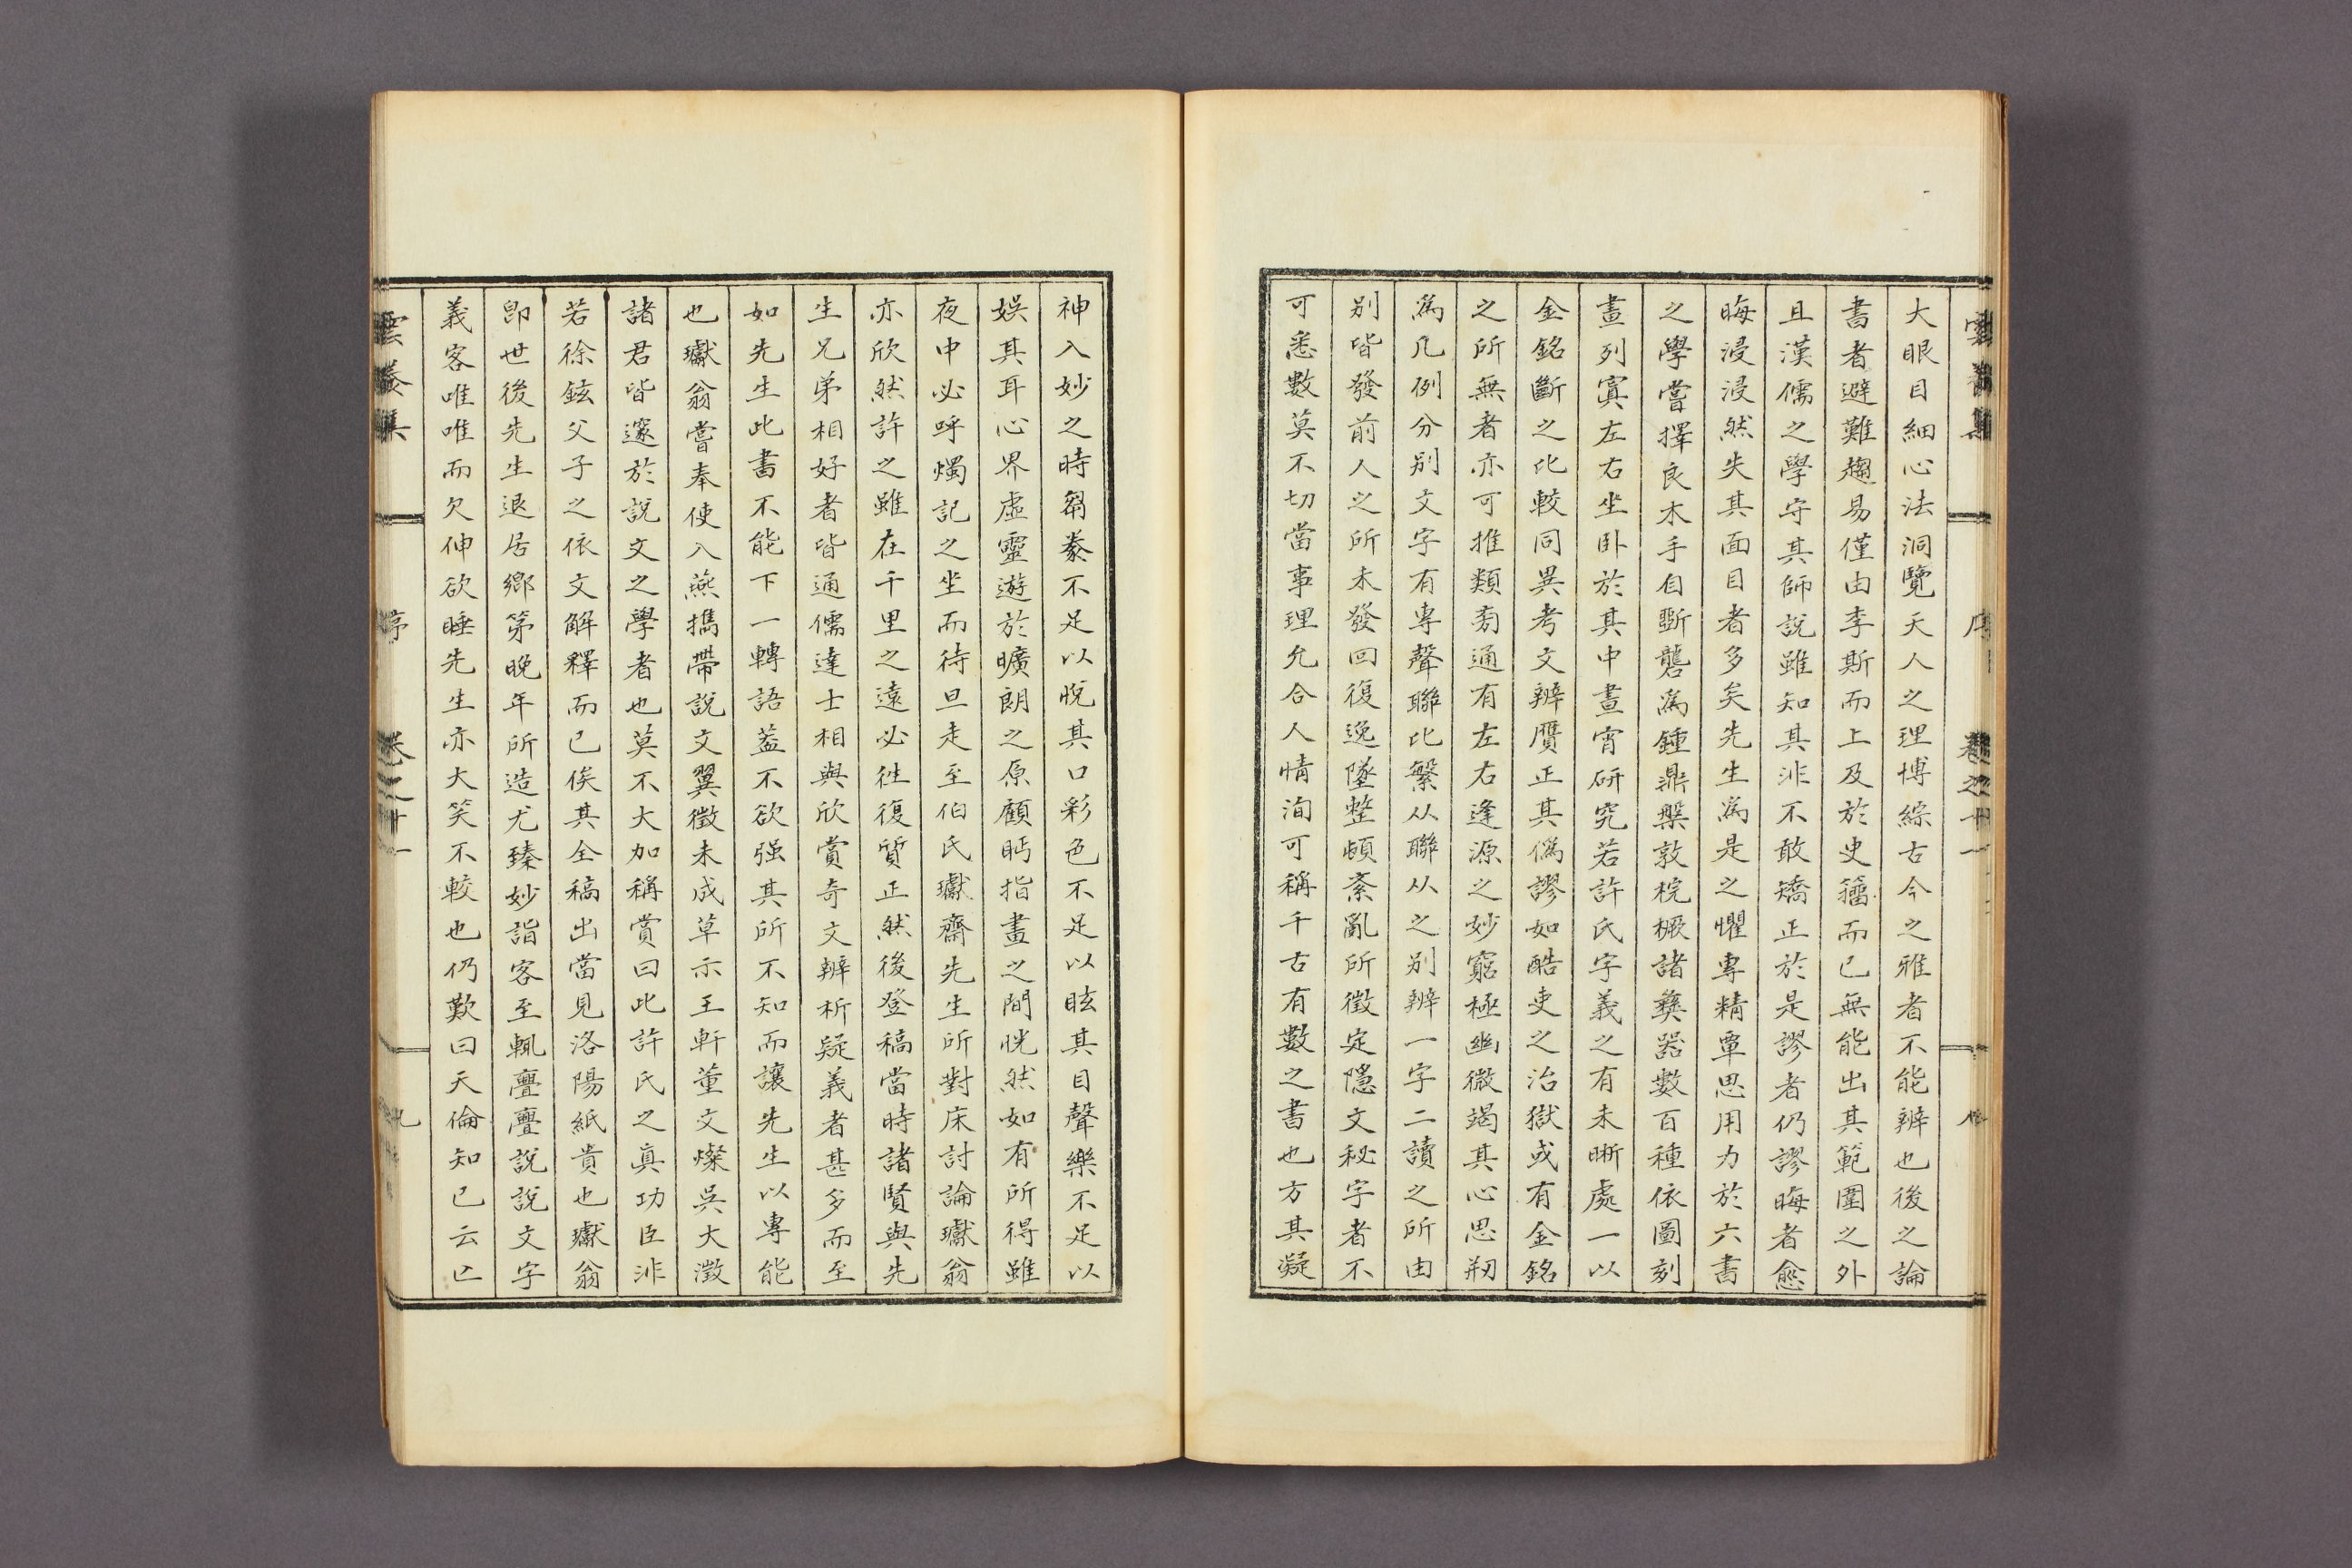 雲養集 序 卷之十一
大眼目細心法洞覽天人之理博綜古今之雅者不能辨也後之論
書者避難趨易僅由李斯而上及於史籒而已無能出其範圍之外
且漢儒之學守其師說雖知其非不敢矯正於是謬者仍謬晦者愈
晦浸浸然失其面目者多矣先生爲是之懼專精覃思用力於六書
之學嘗擇良木手自斲礱爲鍾鼎槃敦梡橛諸彝器數百種依圖刻
畫列寘左右坐臥於其中晝宵研究若許氏字義之有未晣處一以
金銘斷之比較同異考文辨贋正其僞謬如酷吏之治獄或有金銘
之所無者亦可推類旁通有左右逢源之妙窮極幽微竭其心思刱
爲凡例分別文字有專聲聯比繁从聯从之別辨一字二讀之所由
別皆發前人之所未發回復逸墜整頓紊亂所徵定隱文秘字者不
可悉數莫不切當事理允合人情洵可稱千古有數之書也方其凝
神入妙之時芻豢不足以悅其口彩色不足以眩其目聲樂不足以
娛其耳心界虛靈遊於曠朗之原顧眄指畫之間恍然如有所得雖
夜中必呼燭記之坐而待旦走至伯氏瓛齋先生所對床討論瓛翁
亦欣然許之雖在千里之遠必徃復質正然後登稿當時諸賢與先
生兄弟相好者皆通儒達士相與欣賞奇文辨析疑義者甚多而至
如先生此書不能下一轉語盖不欲强其所不知而讓先生以專能
也瓛翁嘗奉使入燕携帶說文翼徵未成草示王軒董文燦吳大澂
諸君皆邃於說文之學者也莫不大加稱賞曰此許氏之眞功臣非
若徐鉉父子之依文解釋而已俟其全稿出當見洛陽紙貴也瓛翁
卽世後先生退居鄉第晚年所造尤臻妙詣客至輒亹亹說說文字
義客唯唯而欠伸欲睡先生亦大笑不較也仍歎曰天倫知己云亡
雲養集 序 卷之十一 九